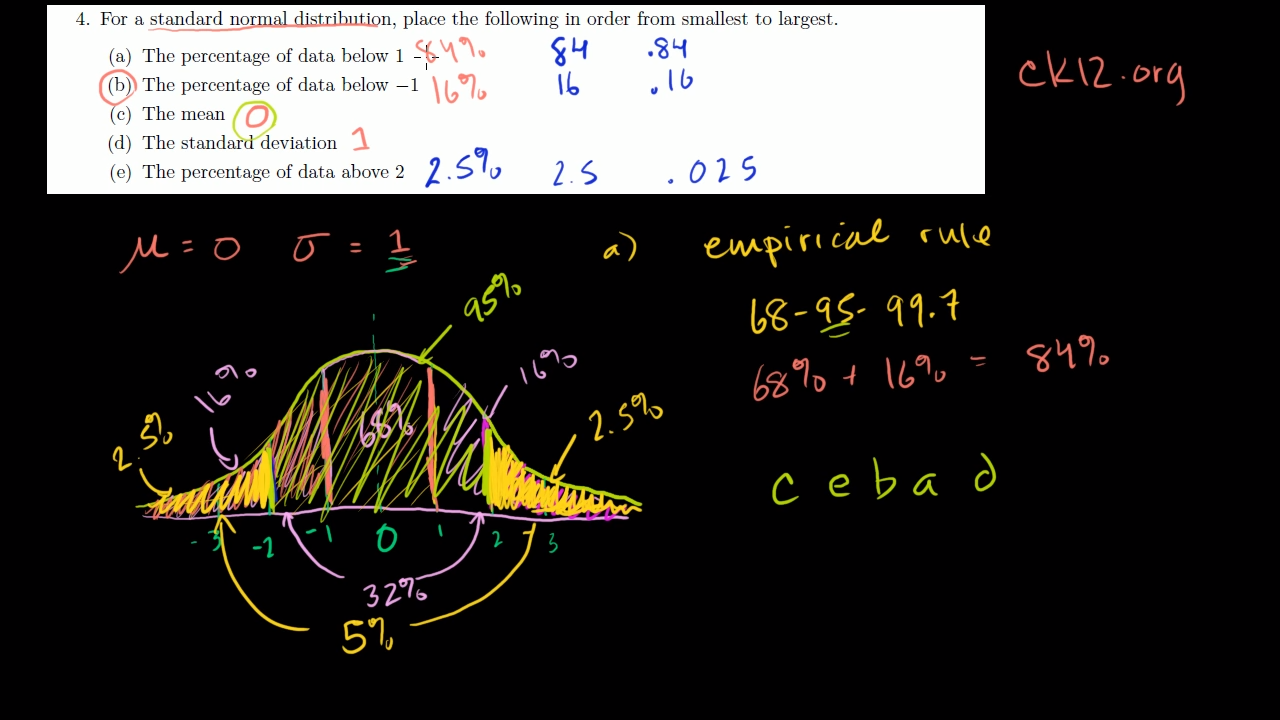 4. For a standard normal distribution, place the following in order from smallest to largest.
(a) The percentage of data below 1 84% 84 .84
(b) The percentage of data below −1 16% 16 .16
(c) The mean 0
(d) The standard deviation 1
(e) The percentage of data above 2 2.5% 2.5 .025
ck12.org
μ = 0 σ = 1
a) empirical rule
68-95-99.7
68% + 16% = 84%
c e b a d
95%
16% 16%
68%
2.5% 2.5%
-3 -2 -1 0 1 2 3
32%
5%